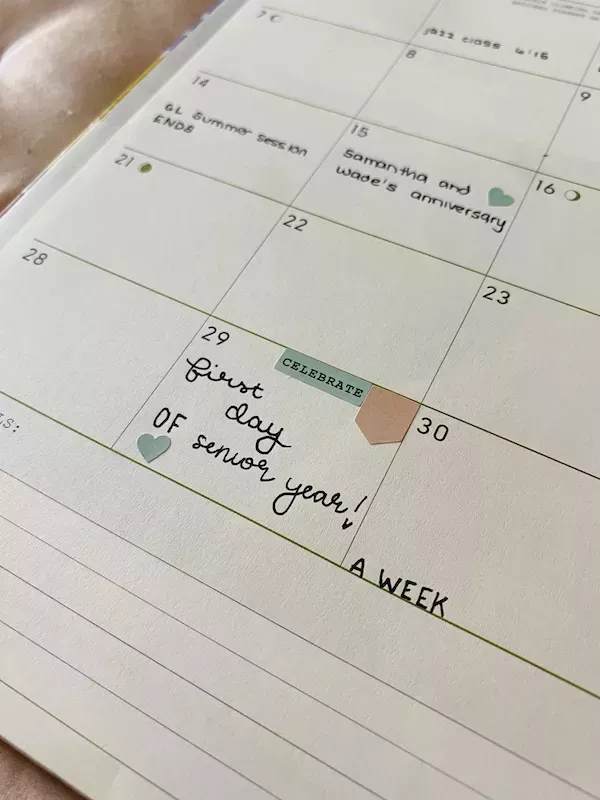 7
jazz class 6:15
8
9
14
GL Summer Session
ENDS
15
Samantha and
Wade's anniversary
16
21
22
23
28
29
CELEBRATE
first
day
OF senior
year!
30
A WEEK
LS: